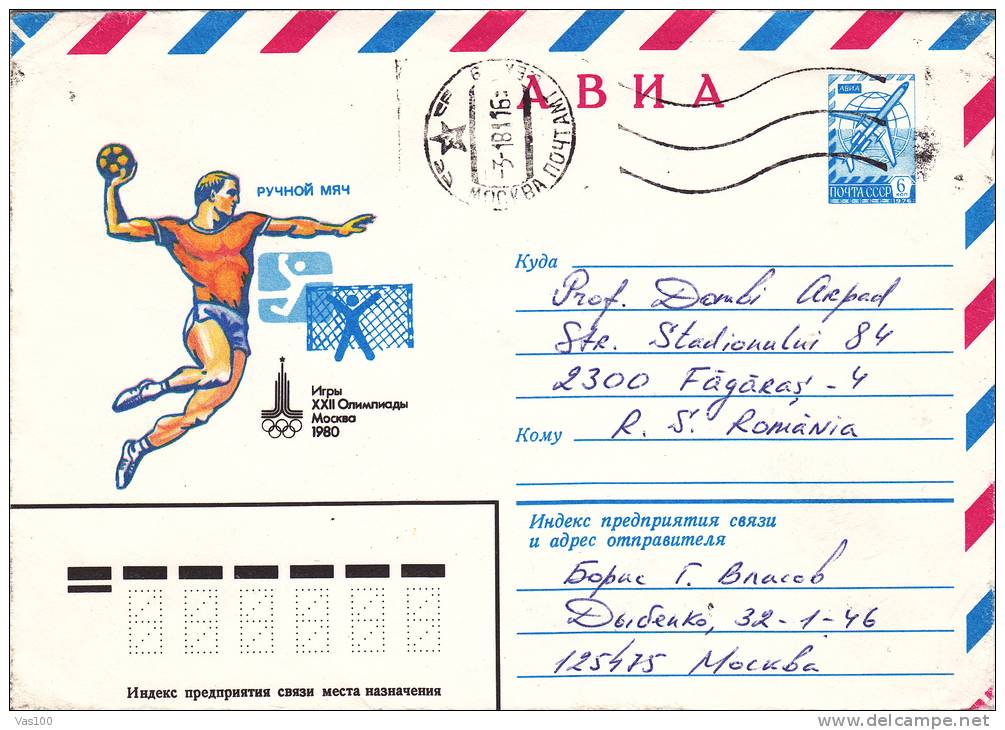 АВИА
МОСКВА ПОЧТАМТ
-3-181 16
АВИА
ПОЧТА СССР 6 коп
1976
РУЧНОЙ МЯЧ
Игры
XXII Олимпиады
Москва
1980
Куда
Prof. Dombi Arpad
Str. Stadionului 84
2300 Făgăraș - 4
Кому R. S. România
Индекс предприятия связи
и адрес отправителя
Борис Г. Власов
Дыбенко, 32-1-46
125475 Москва
Индекс предприятия связи места назначения
Vas100
delcampe.net